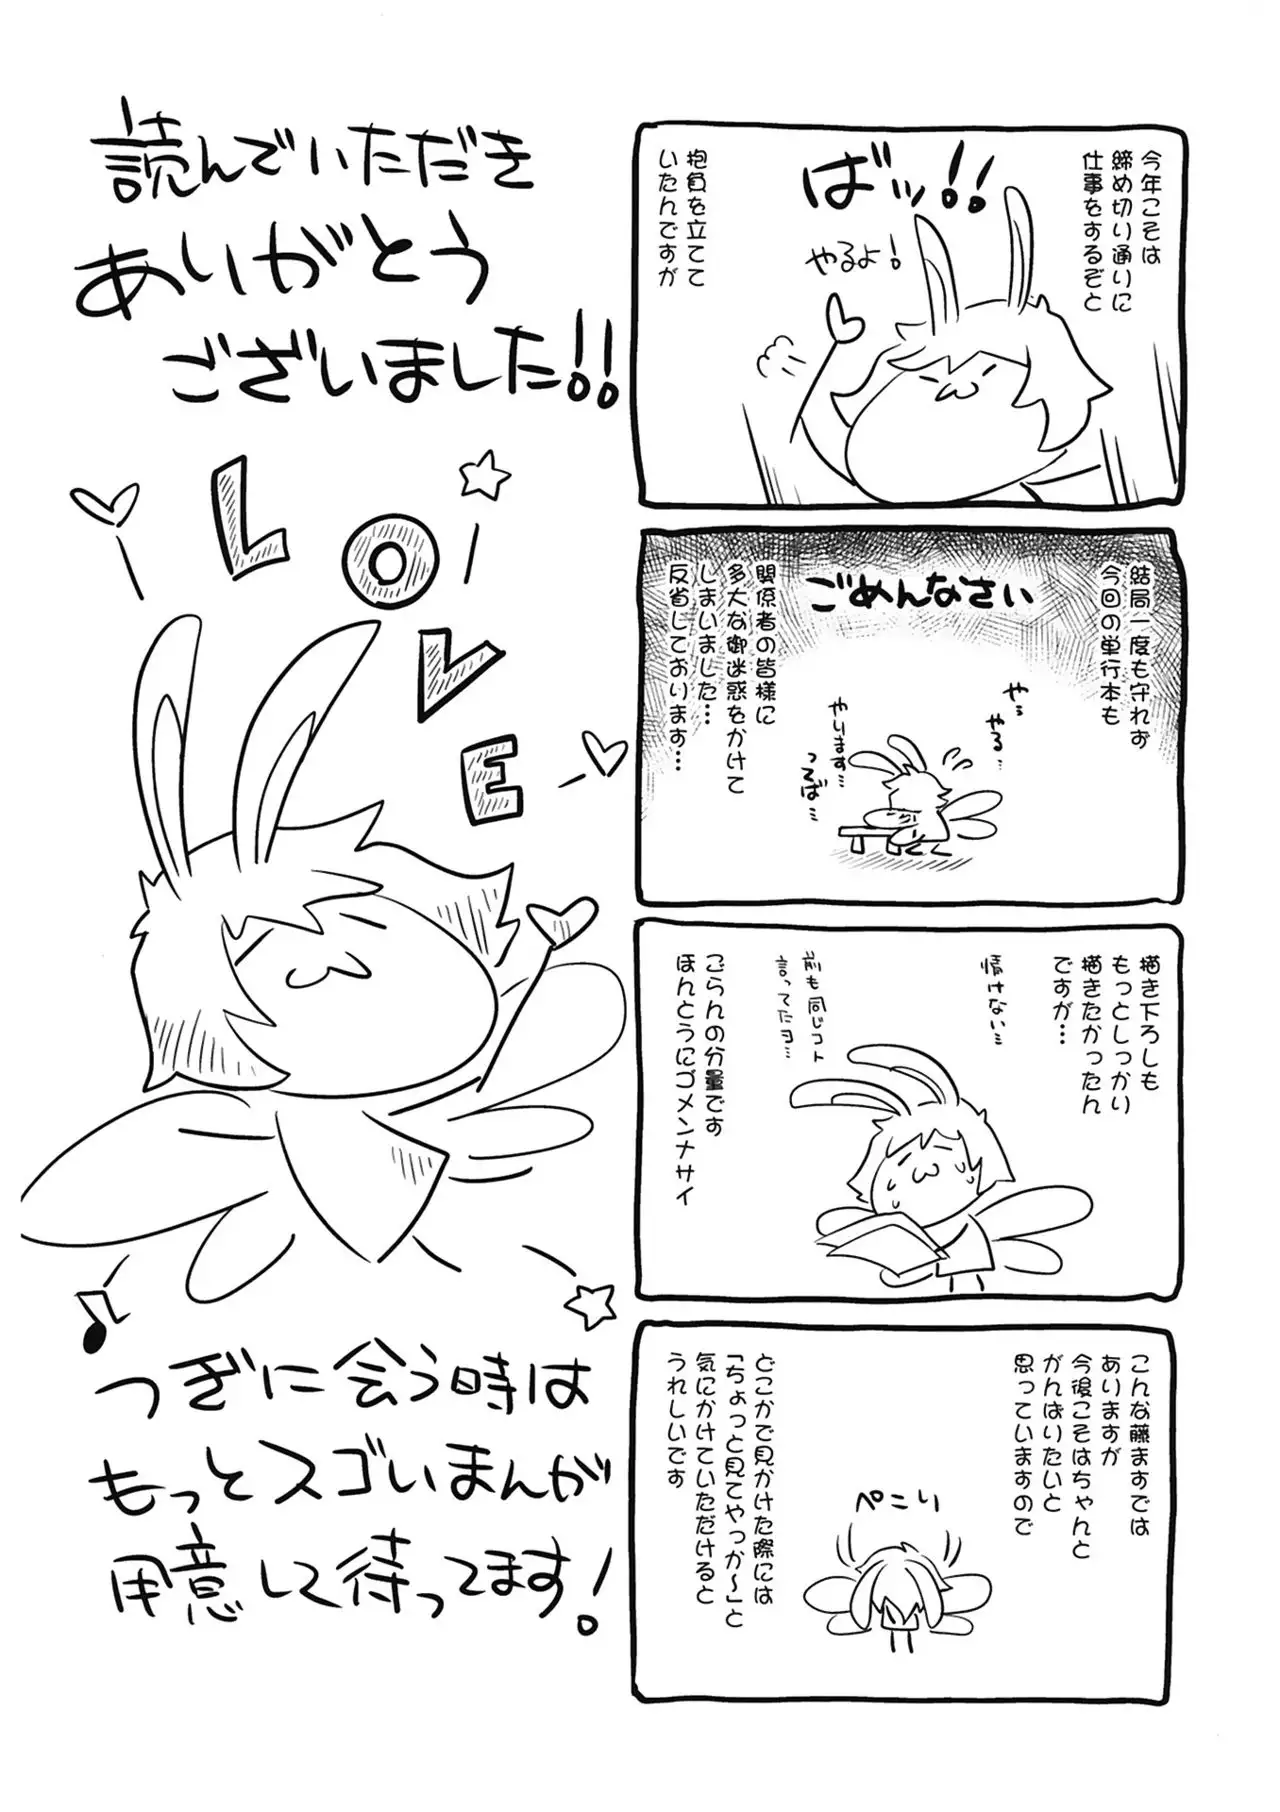 今年こそは
締め切り通りに
仕事をするぞと
ばッ!!
やるよ!
抱負を立てて
いたんですが
結局一度も守れず
今回の単行本も
ごめんなさい
関係者の皆様に
多大な御迷惑をかけて
しまいました…
反省しております…
やっ
やる…
やります…
つるば…
描き下ろしも
もっとしっかり
描きたかったん
ですが…
情けない…
前も同じコト
言ってたヨ…
ごらんの分量です
ほんとうにゴメンナサイ
こんな藤ますでは
ありますが
今後こそはちゃんと
がんばりたいと
思っていますので
ぺこり
どこかで見かけた際には
「ちょっと見てやっか~」と
気にかけていただけると
うれしいです
読んでいただき
ありがとう
ございました!!
LOVE
つぎに会う時は
もっとスゴいまんが
用意して待ってます!